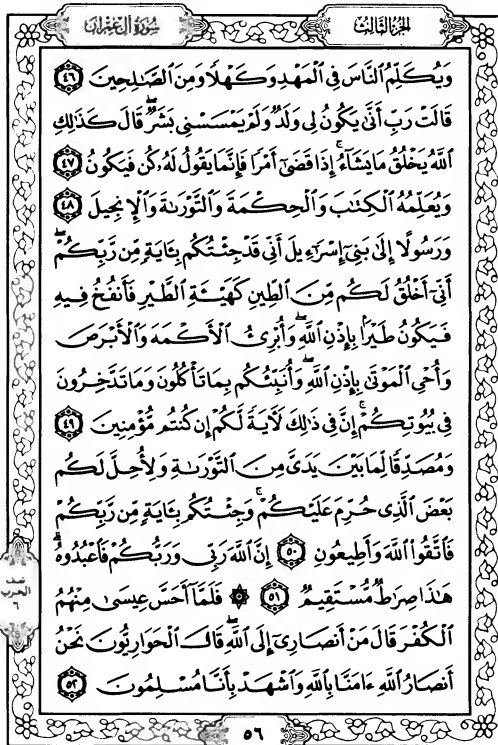 الجزء الثالث
سورة آل عمران
وَيُكَلِّمُ ٱلنَّاسَ فِي ٱلْمَهْدِ وَكَهْلًا وَمِنَ ٱلصَّٰلِحِينَ ٤٦
قَالَتْ رَبِّ أَنَّىٰ يَكُونُ لِي وَلَدٌ وَلَمْ يَمْسَسْنِي بَشَرٌ ۖ قَالَ كَذَٰلِكِ
ٱللَّهُ يَخْلُقُ مَا يَشَآءُ ۚ إِذَا قَضَىٰٓ أَمْرًا فَإِنَّمَا يَقُولُ لَهُۥ كُن فَيَكُونُ ٤٧
وَيُعَلِّمُهُ ٱلْكِتَٰبَ وَٱلْحِكْمَةَ وَٱلتَّوْرَىٰةَ وَٱلْإِنجِيلَ ٤٨
وَرَسُولًا إِلَىٰ بَنِيٓ إِسْرَٰٓءِيلَ أَنِّي قَدْ جِئْتُكُم بِـَٔايَةٍ مِّن رَّبِّكُمْ ۖ
أَنِّيٓ أَخْلُقُ لَكُم مِّنَ ٱلطِّينِ كَهَيْـَٔةِ ٱلطَّيْرِ فَأَنفُخُ فِيهِ
فَيَكُونُ طَيْرًۢا بِإِذْنِ ٱللَّهِ ۖ وَأُبْرِئُ ٱلْأَكْمَهَ وَٱلْأَبْرَصَ
وَأُحْيِ ٱلْمَوْتَىٰ بِإِذْنِ ٱللَّهِ ۖ وَأُنَبِّئُكُم بِمَا تَأْكُلُونَ وَمَا تَدَّخِرُونَ
فِي بُيُوتِكُمْ ۚ إِنَّ فِي ذَٰلِكَ لَـَٔايَةً لَّكُمْ إِن كُنتُم مُّؤْمِنِينَ ٤٩
وَمُصَدِّقًا لِّمَا بَيْنَ يَدَيَّ مِنَ ٱلتَّوْرَىٰةِ وَلِأُحِلَّ لَكُم
بَعْضَ ٱلَّذِي حُرِّمَ عَلَيْكُمْ ۚ وَجِئْتُكُم بِـَٔايَةٍ مِّن رَّبِّكُمْ
فَٱتَّقُوا۟ ٱللَّهَ وَأَطِيعُونِ ٥٠ إِنَّ ٱللَّهَ رَبِّي وَرَبُّكُمْ فَٱعْبُدُوهُ ۗ
هَٰذَا صِرَٰطٌ مُّسْتَقِيمٌ ٥١ ۞ فَلَمَّآ أَحَسَّ عِيسَىٰ مِنْهُمُ
ٱلْكُفْرَ قَالَ مَنْ أَنصَارِيٓ إِلَى ٱللَّهِ ۖ قَالَ ٱلْحَوَارِيُّونَ نَحْنُ
أَنصَارُ ٱللَّهِ ءَامَنَّا بِٱللَّهِ وَٱشْهَدْ بِأَنَّا مُسْلِمُونَ ٥٢
نصف
الحزب
٦
٥٦